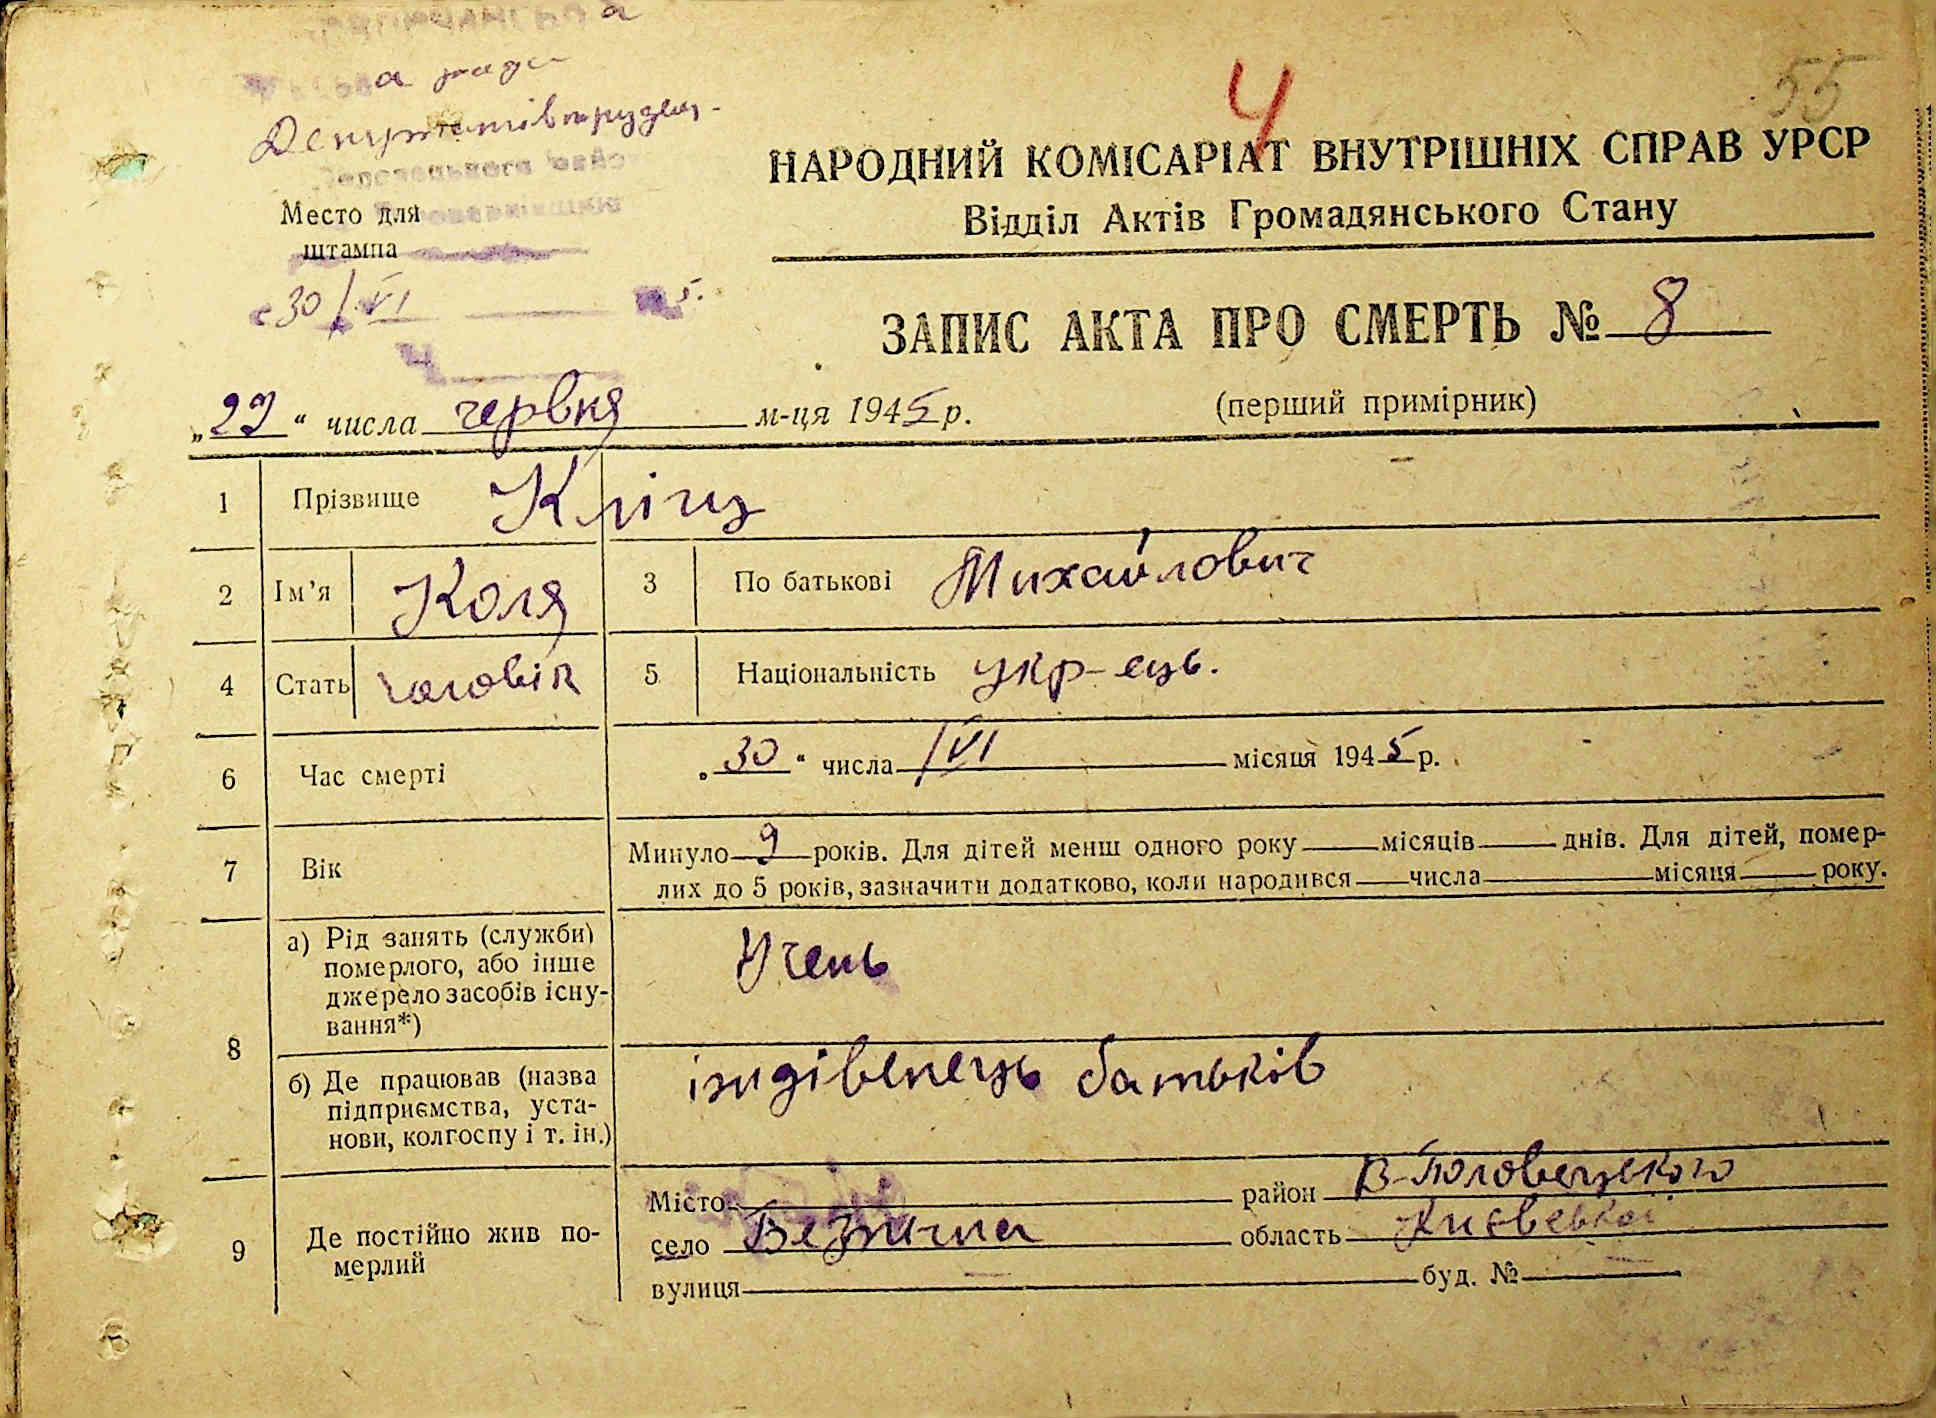 4
55
НАРОДНИЙ КОМІСАРІАТ ВНУТРІШНІХ СПРАВ УРСР
Відділ Актів Громадянського Стану
Место для
штампа
30/VI 5.
ЗАПИС АКТА ПРО СМЕРТЬ № 8
(перший примірник)
„29“ числа червня м-ця 1945 р.
1 Прізвище
2 Ім'я Коля 3 По батькові Михайлович
4 Стать чоловік 5 Національність укр-ець.
6 Час смерті „30“ числа /VI місяця 1945 р.
7 Вік Минуло 9 років. Для дітей менш одного року місяців днів. Для дітей, помер-
лих до 5 років, зазначити додатково, коли народився числа місяця року.
8 а) Рід занять (служби)
померлого, або інше
джерело засобів існу-
вання*)
Учень
б) Де працював (назва
підприємства, уста-
нови, колгоспу і т. ін.)
іждівенець батьків
9 Де постійно жив по-
мерлий
Місто район В-Половецького
село область Києвської
вулиця буд. №